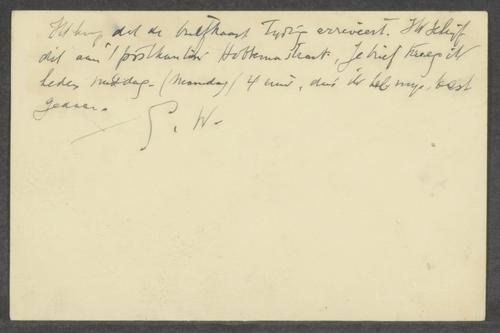 Ik hoop dat de briefkaart tydig arriveert. Ik schryf
dit aan 't postkantoor Hobbemastraat. Je brief kreeg ik
heden middag (Maandag) 4 uur, dus ik heb myn best
gedaan.
S. W.